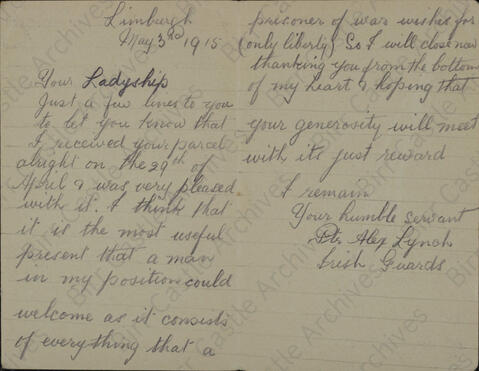 Limburgh
May 3rd 1915
Your Ladyship
Just a few lines to you
to let you know that
I received your parcel
alright on the 29th of
April & was very pleased
with it. I think that
it is the most useful
present that a man
in my position could
welcome as it consists
of everything that a
prisoner of war wishes for
(only liberty) So I will close now
thanking you from the bottom
of my heart & hoping that
your generosity will meet
with its just reward
I remain
Your humble servant
Pte Alex Lynch
Irish Guards
Birr Castle Archives